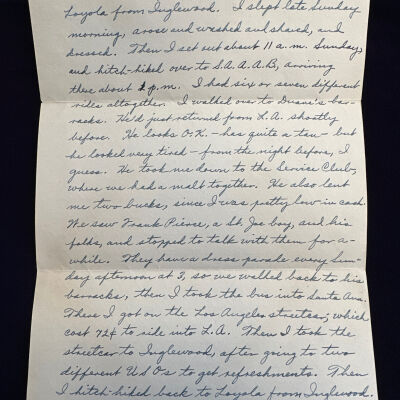 Loyola from Inglewood. I slept late Sunday
morning, arose and washed and shaved, and
dressed. Then I set out about 11 a.m. Sunday,
and hitch-hiked over to S.A.A.A.B., arriving
there about 2 p.m. I had six or seven different
rides altogether. I walked over to Duane's bar-
racks. He'd just returned from L.A. shortly
before. He looks O.K. – has quite a tan – but
he looked very tired – from the night before, I
guess. He took me down to the Service Club,
where we had a malt together. He also lent
me two bucks, since I was pretty low in cash.
We saw Frank Pierce, a St. Joe boy, and his
folks, and stopped to talk with them for a-
while. They have a dress parade every Sun-
day afternoon at 3, so we walked back to his
barracks, then I took the bus into Santa Ana.
There I got on the Los Angeles streetcar, which
cost 72¢ to ride into L.A. Then I took the
streetcar to Inglewood, after going to two
different USO's to get refreshments. Then
I hitch-hiked back to Loyola from Inglewood.